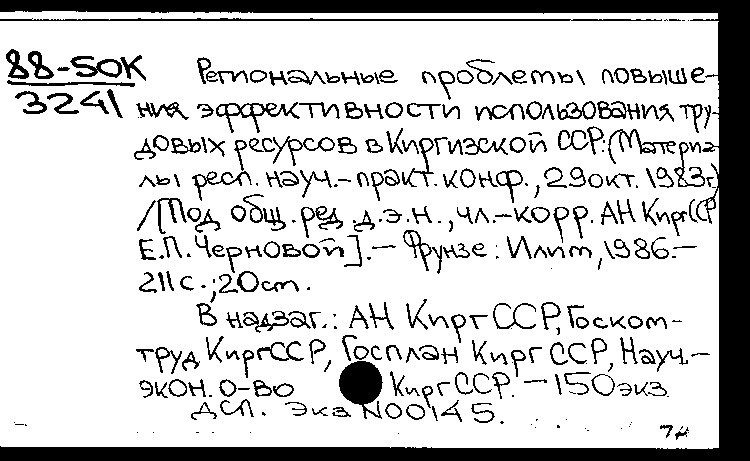 88-50К
3241
Региональные проблемы повыше-
ния эффективности использования тру-
довых ресурсов в Киргизской ССР: (Материа-
лы респ. науч.-практ. конф., 29 окт. 1983г.)
/[Под общ. ред. д.э.н., чл.-корр. АН КиргССР
Е.П. Черновой]. — Фрунзе: Илим, 1986.—
211 с.; 20 см.
В надзаг.: АН Кирг ССР, Госком-
труд КиргССР, Госплан Кирг ССР, Науч.-
экон. о-во Кирг ССР. — 150 экз
ДСП. Экз N00145.